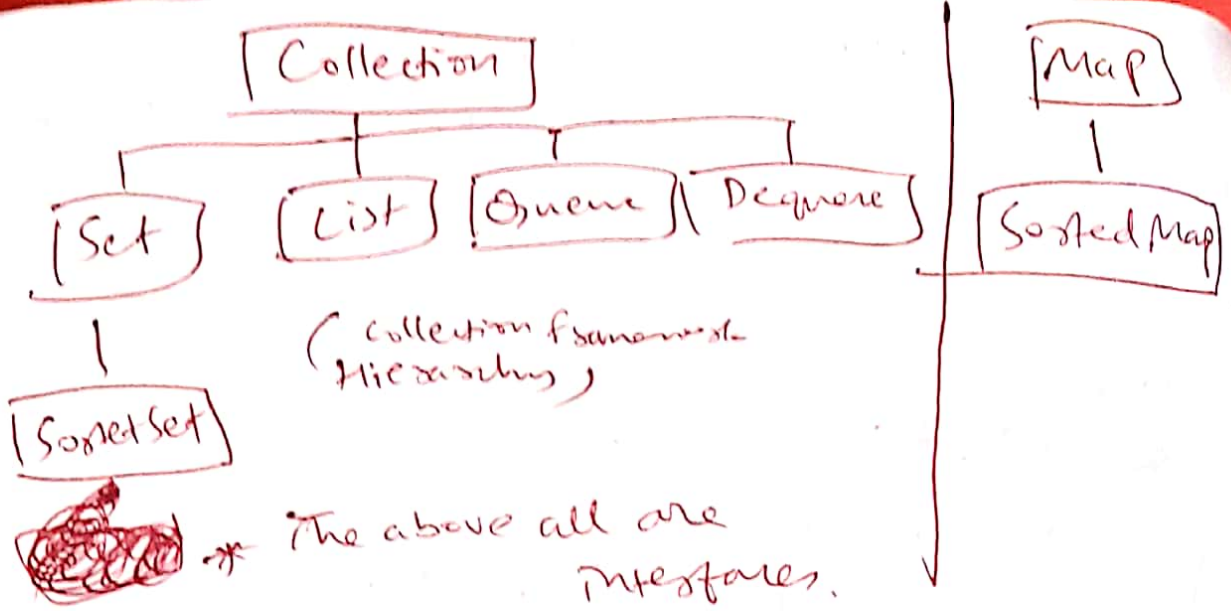 Collection
Map
Set
List
Queue
Dequeue
Sorted Map
(Collection framework
Hierarchy)
SortetSet
* The above all are
interfaces.